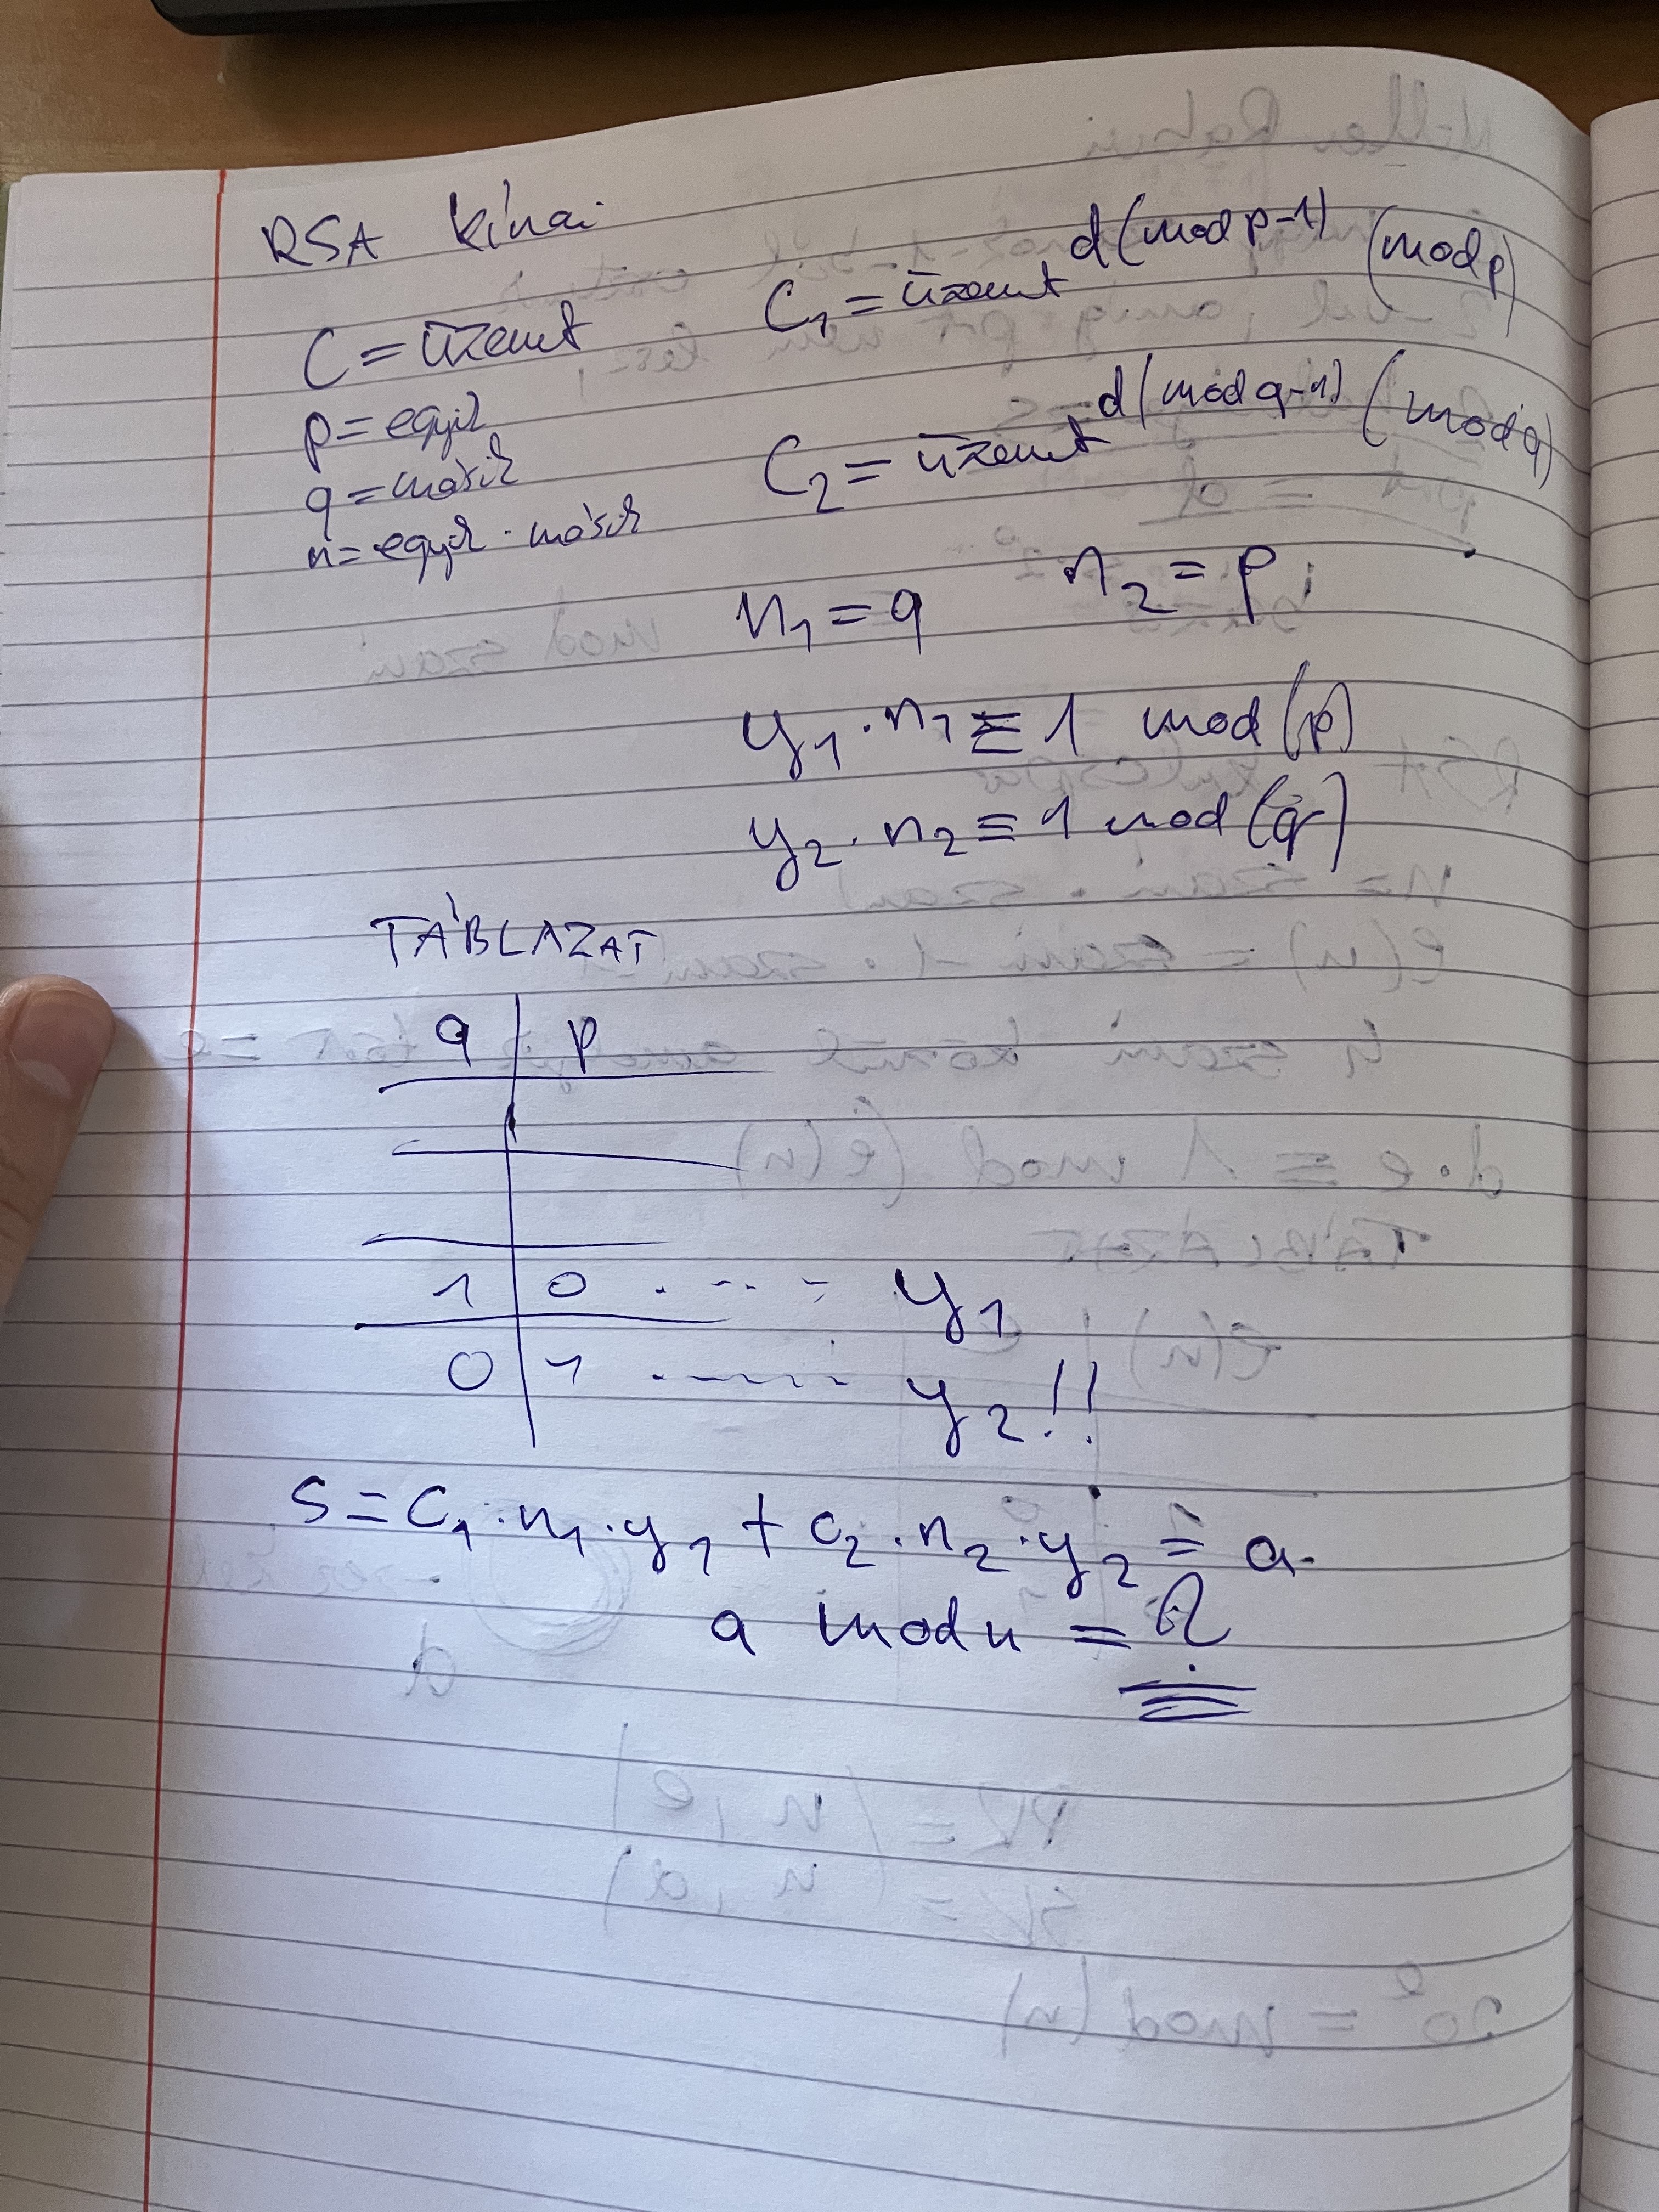 RSA kínai
C = üzenet
p = egyik
q = másik
n = egyik · másik
C₁ = üzenet^d (mod p-1) (mod p)
C₂ = üzenet^d (mod q-1) (mod q)
n₁ = q n₂ = p
y₁ · n₁ ≡ 1 mod (p)
y₂ · n₂ ≡ 1 mod (q)
TÁBLAZAT
q | p
1 | 0 . - - - y₁
0 | 1 . - - - - y₂!!
S = C₁ · n₁ · y₁ + C₂ · n₂ · y₂ = a
a mod n =